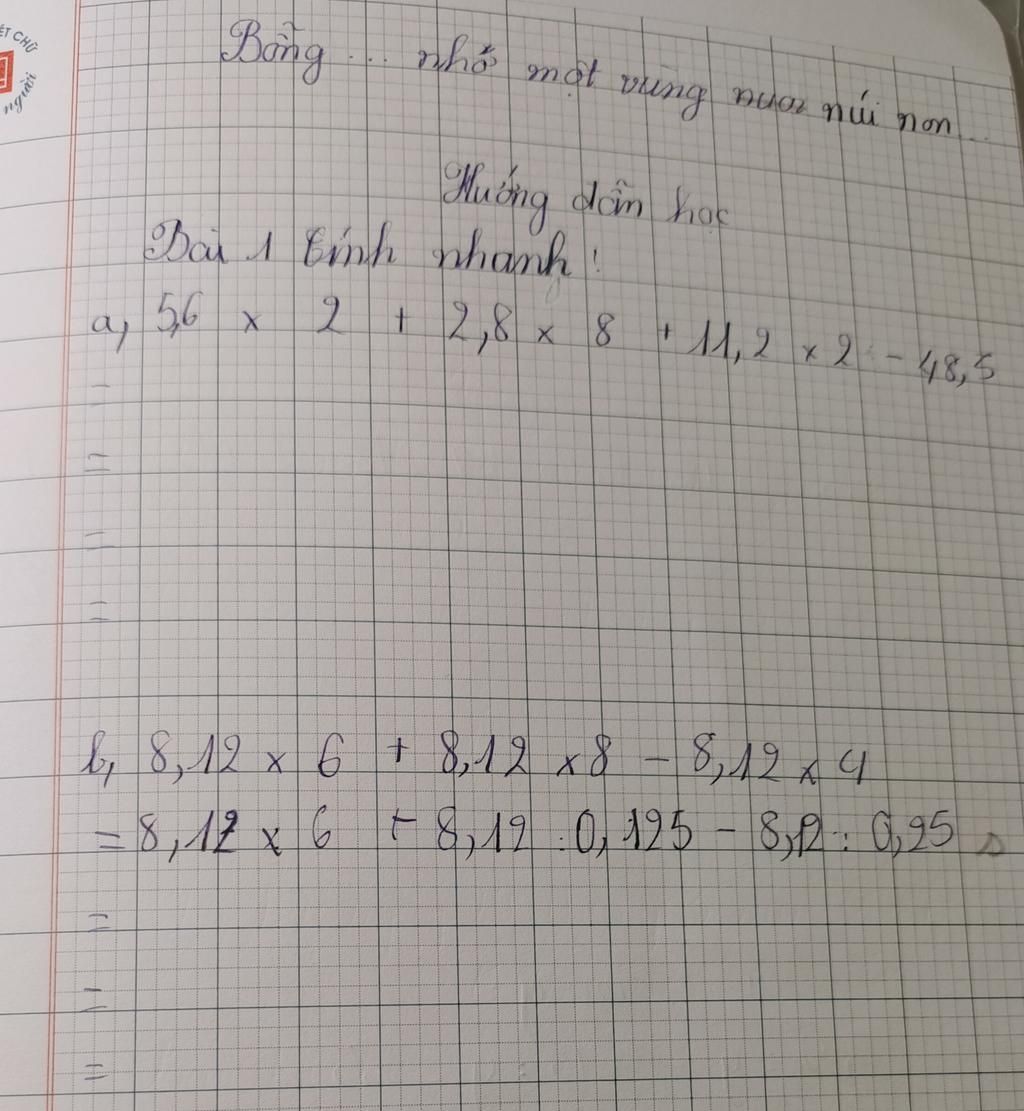 ẾT CHỮ
người
Bỗng ... nhớ một vùng núi non
Hướng dẫn học
Bài 1 tính nhanh:
a, 5,6 x 2 + 2,8 x 8 + 11,2 x 2 - 48,5
=
=
=
=
b, 8,12 x 6 + 8,12 x 8 - 8,12 x 4
= 8,12 x 6 + 8,12 : 0,125 - 8,12 : 0,25
=
=
=